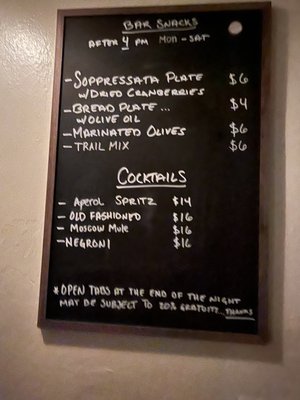 BAR SNACKS
AFTER 4 PM MON - SAT
- SOPPRESSATA PLATE $6
W/DRIED CRANBERRIES
- BREAD PLATE ... $4
W/OLIVE OIL
- MARINATED OLIVES $6
- TRAIL MIX $6
COCKTAILS
- Aperol SPRITZ $14
- OLD FASHIONED $16
- Moscow Mule $16
- NEGRONI $16
* OPEN TABS AT THE END OF THE NIGHT
MAY BE SUBJECT TO 20% GRATUITY... THANKS